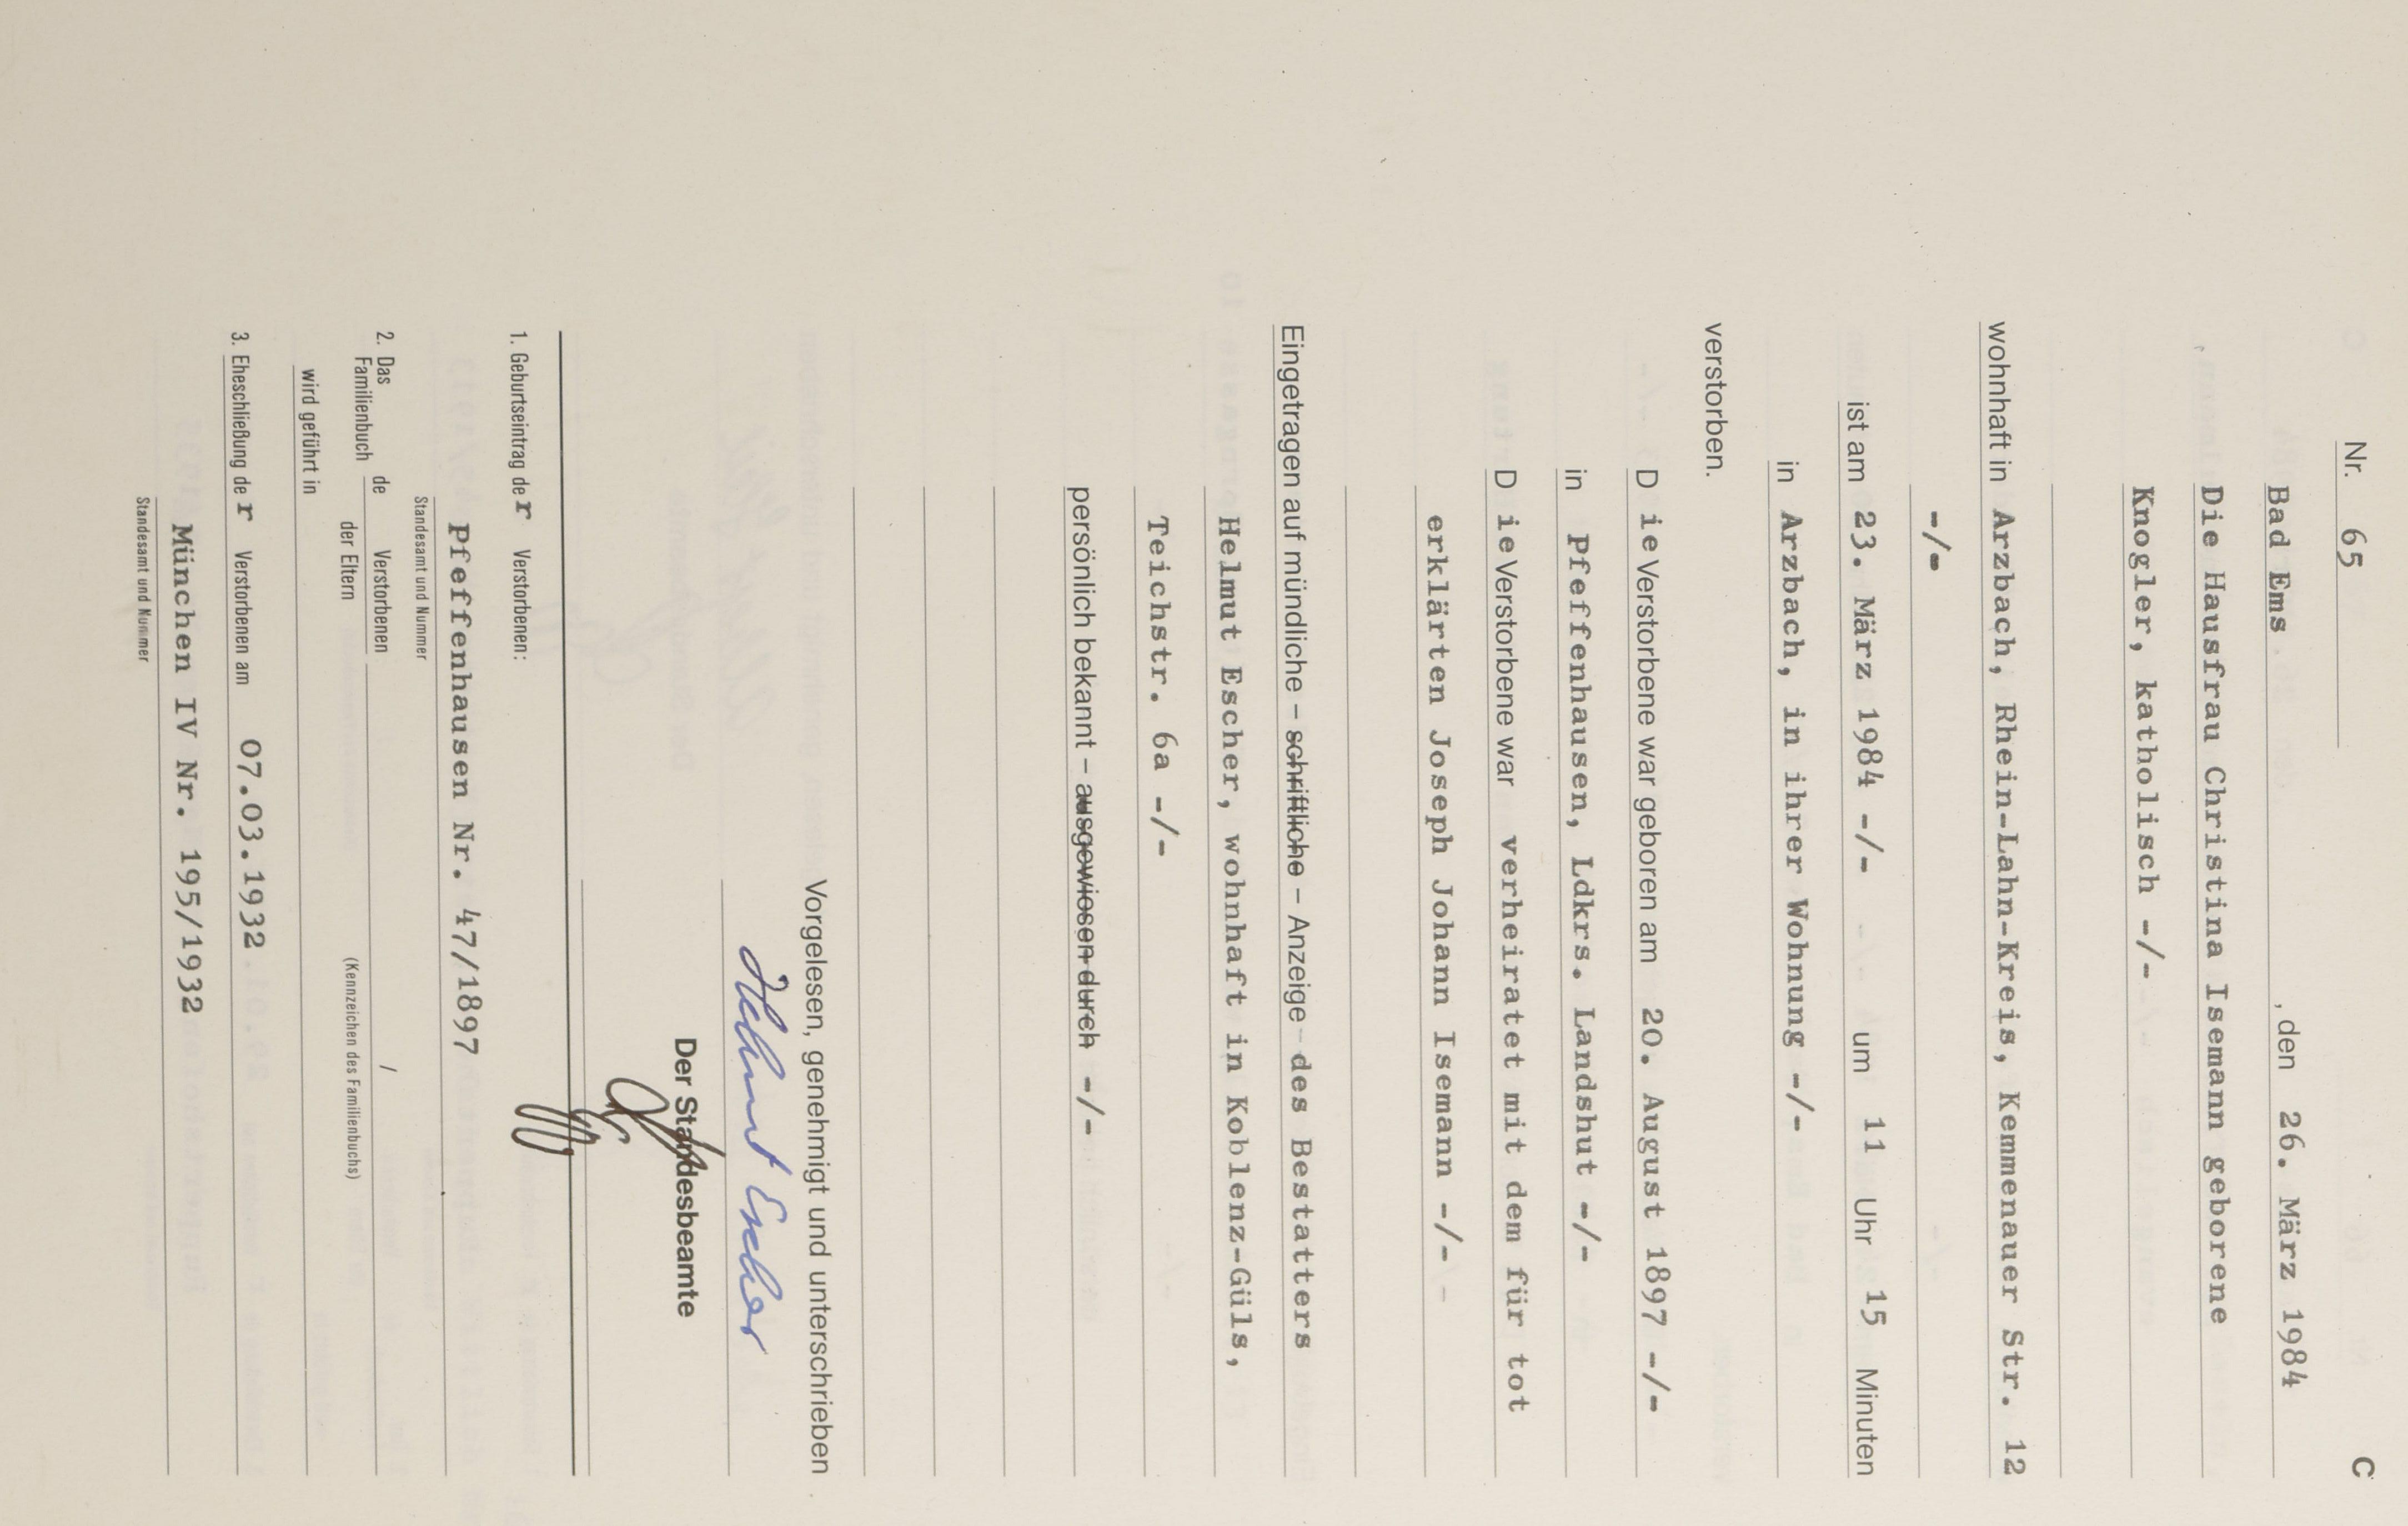 Nr. 65 C
Bad Ems , den 26. März 1984
Die Hausfrau Christina Isemann geborene
Knogler, katholisch -/-
wohnhaft in Arzbach, Rhein-Lahn-Kreis, Kemmenauer Str. 12
-/-
ist am 23. März 1984 -/- um 11 Uhr 15 Minuten
in Arzbach, in ihrer Wohnung -/-
verstorben.
D ie Verstorbene war geboren am 20. August 1897 -/-
in Pfeffenhausen, Ldkrs. Landshut -/-
D ie Verstorbene war verheiratet mit dem für tot
erklärten Joseph Johann Isemann -/-
Eingetragen auf mündliche – schriftliche – Anzeige des Bestatters
Helmut Escher, wohnhaft in Koblenz-Güls,
Teichstr. 6a -/-
persönlich bekannt – ausgewiesen durch -/-
Vorgelesen, genehmigt und unterschrieben
Helmut Escher
Der Standesbeamte
1. Geburtseintrag de r Verstorbenen:
Pfeffenhausen Nr. 47/1897
Standesamt und Nummer
2. Das Familienbuch de Verstorbenen /
der Eltern (Kennzeichen des Familienbuchs)
wird geführt in
3. Eheschließung de r Verstorbenen am 07.03.1932
München IV Nr. 195/1932
Standesamt und Nummer